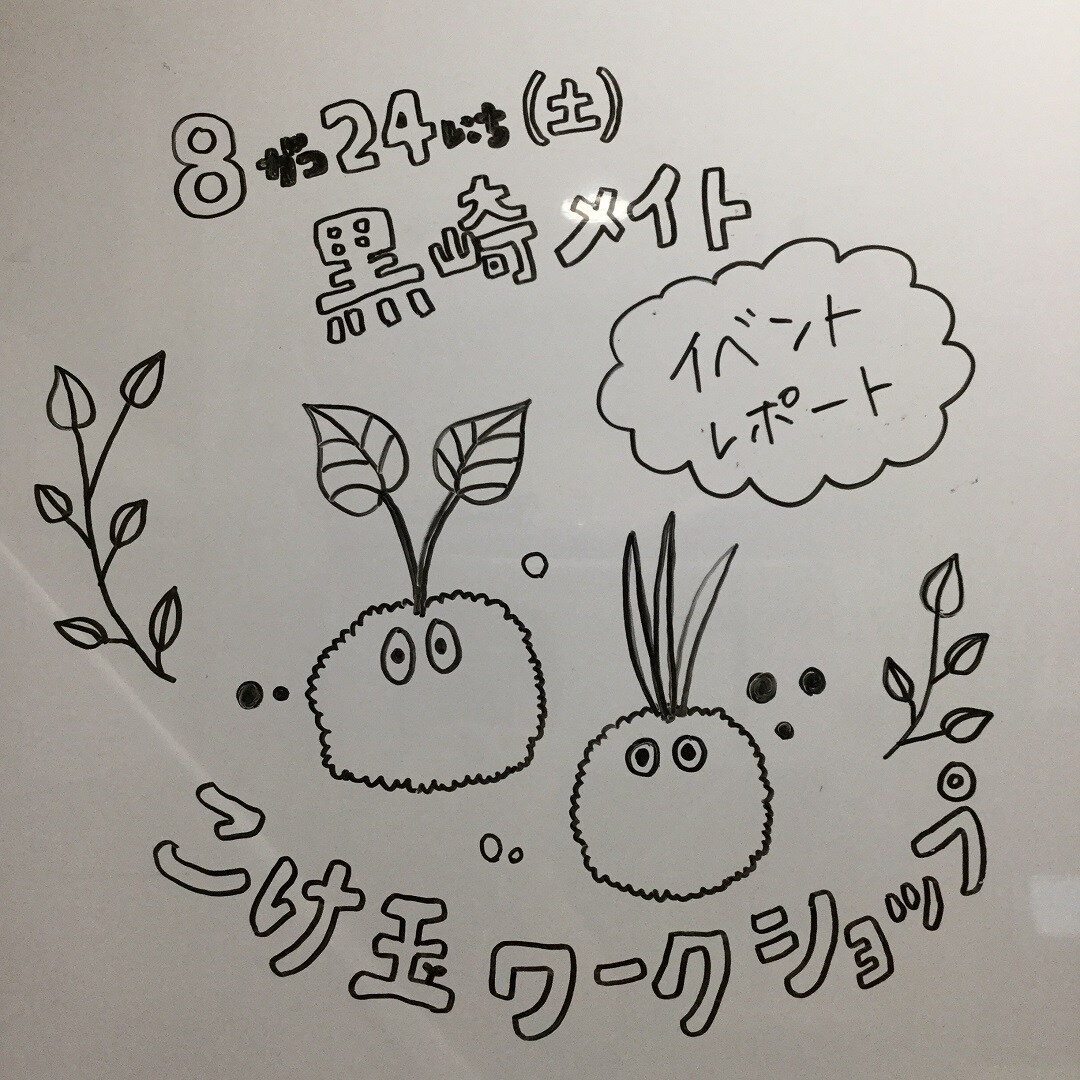 8がつ24にち(土)
黒崎メイト
イベント
レポート
こけ玉ワークショップ